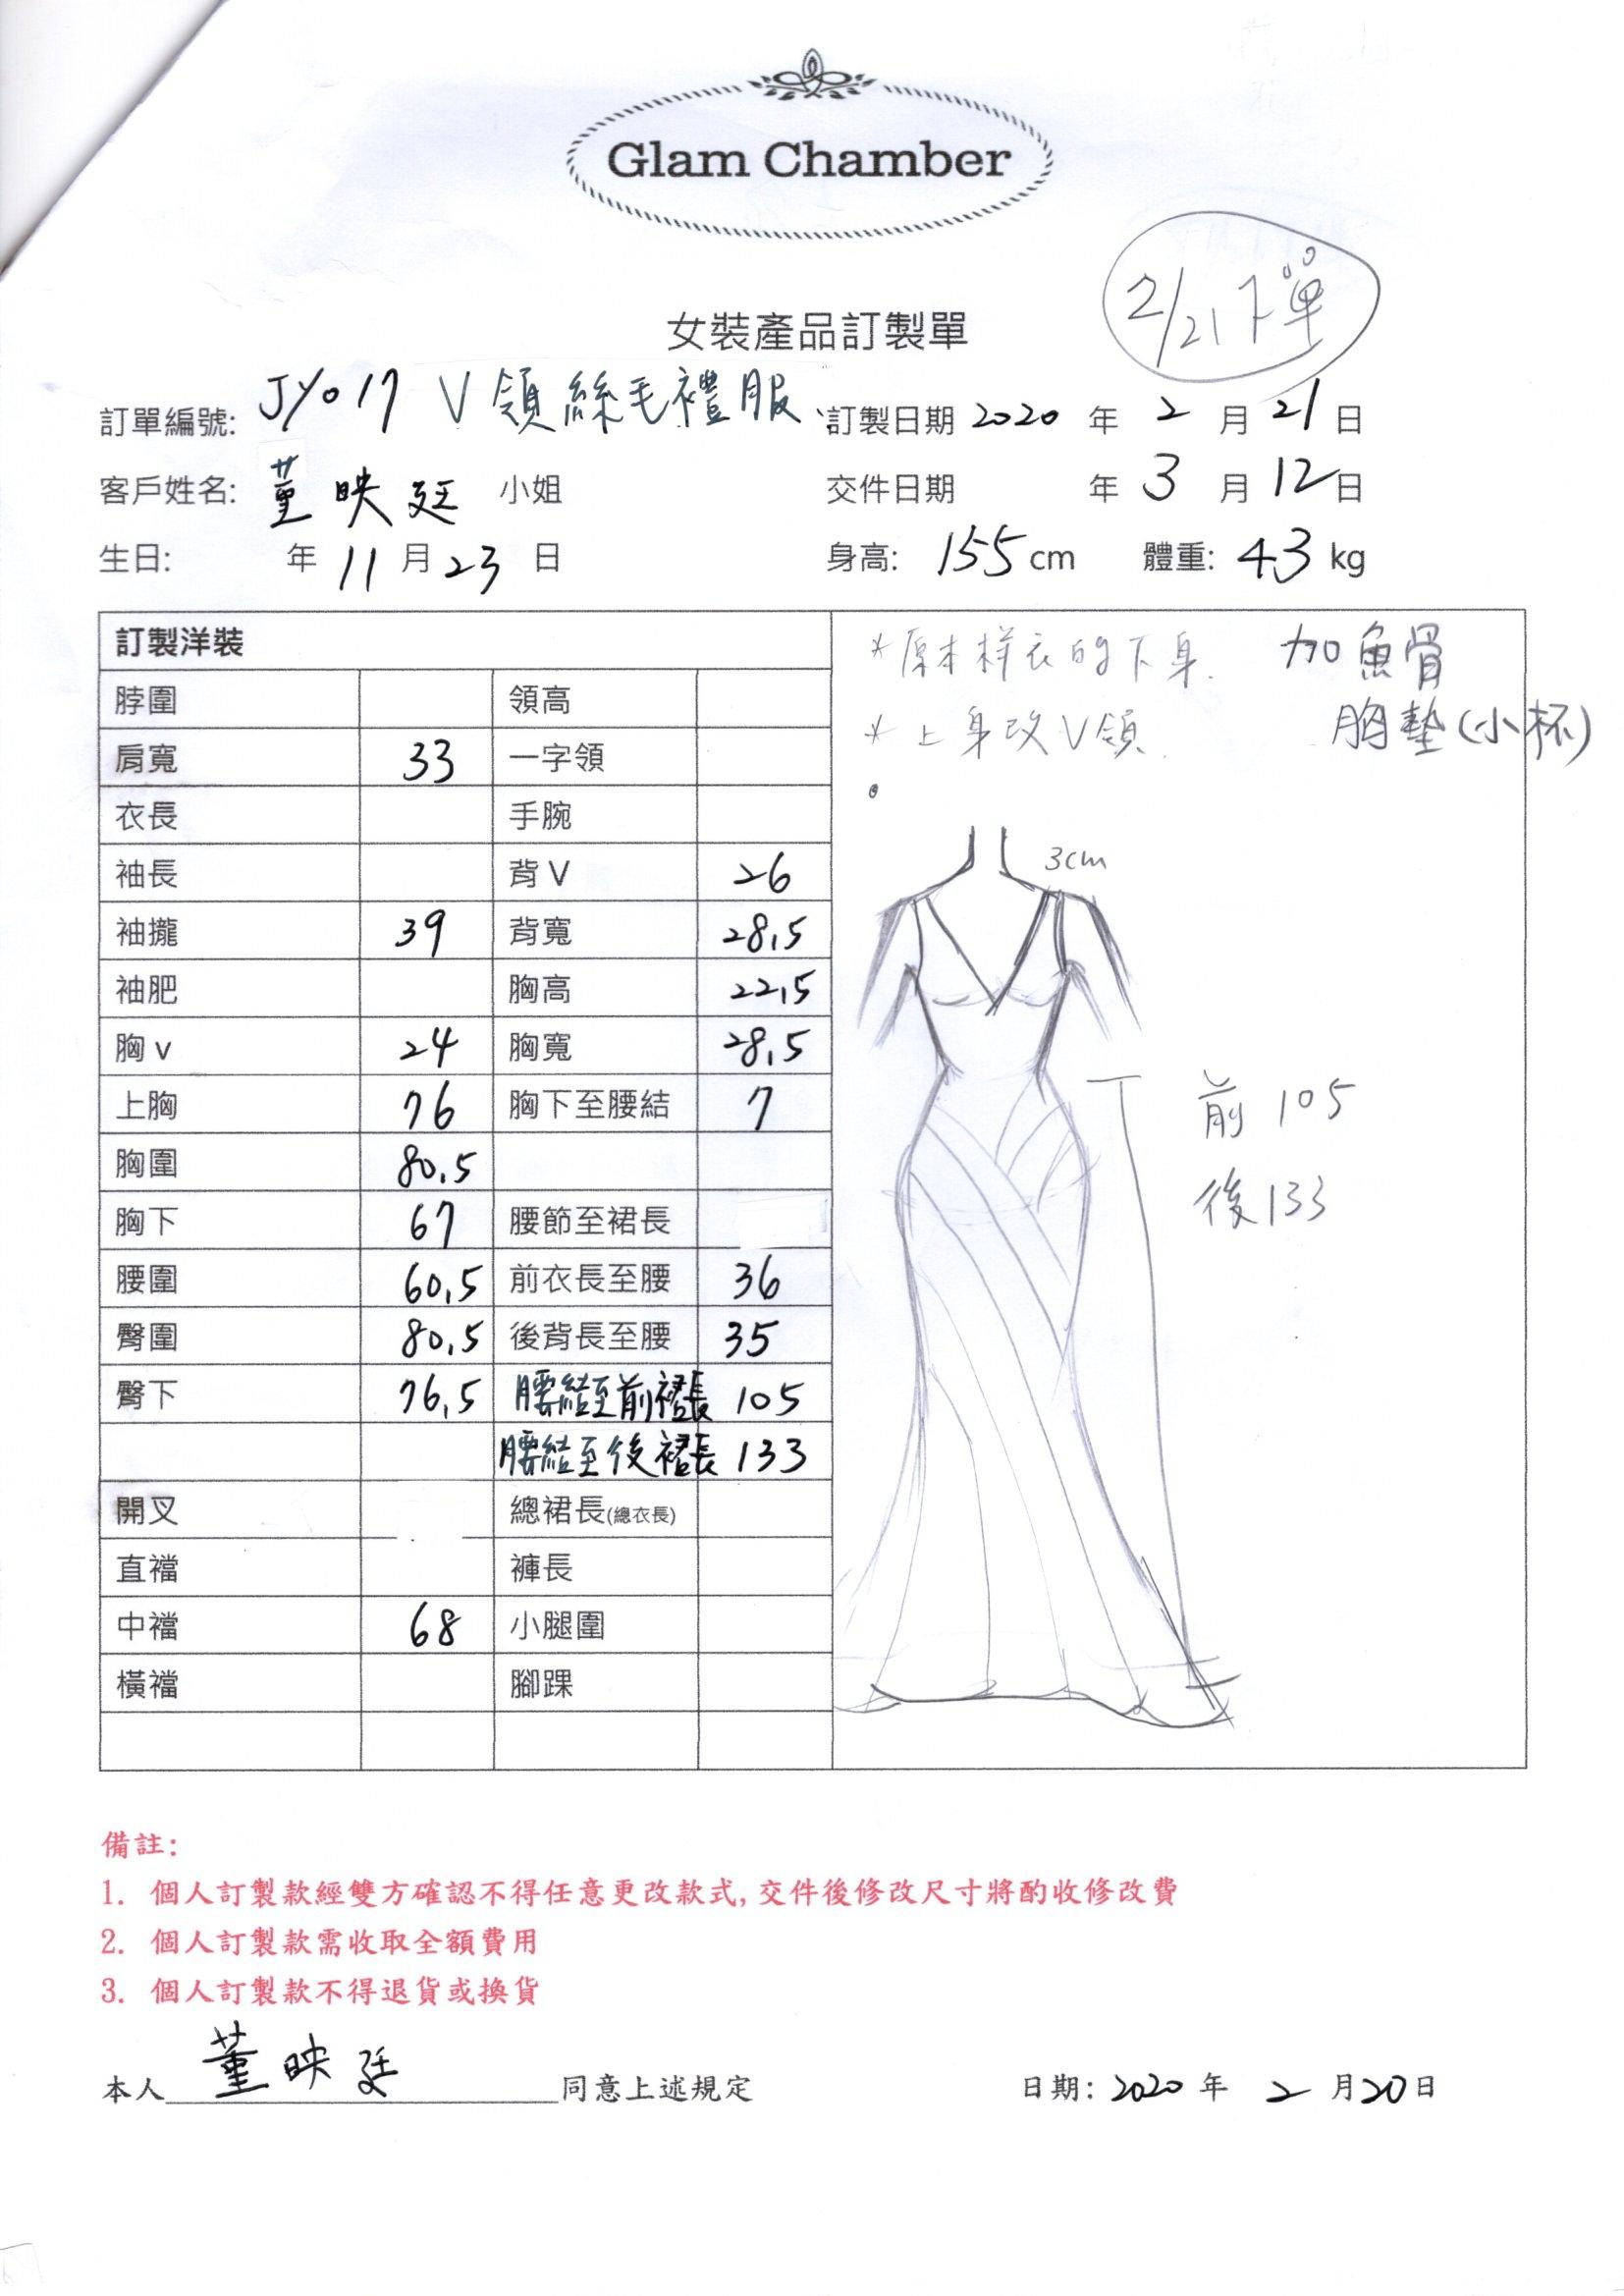 Glam Chamber
2/21下單
女裝產品訂製單
訂單編號: JY017 V領絲毛禮服 訂製日期 2020 年 2 月 21 日
客戶姓名: 董映廷 小姐 交件日期 年 3 月 12 日
生日: 年 11 月 23 日 身高: 155 cm 體重: 43 kg
訂製洋裝
脖圍 領高
肩寬 33 一字領
衣長 手腕
袖長 背V 26
袖攏 39 背寬 28.5
袖肥 胸高 22.5
胸v 24 胸寬 28.5
上胸 76 胸下至腰結 7
胸圍 80.5
胸下 67 腰節至裙長
腰圍 60.5 前衣長至腰 36
臀圍 80.5 後背長至腰 35
臀下 76.5 腰結至前裙長 105
腰結至後裙長 133
開叉 總裙長(總衣長)
直襠 褲長
中襠 68 小腿圍
橫襠 腳踝
*原本样衣的下身. 加魚骨
*上身改V領. 胸墊(小杯)
3cm
前 105
後 133
備註:
1. 個人訂製款經雙方確認不得任意更改款式,交件後修改尺寸將酌收修改費
2. 個人訂製款需收取全額費用
3. 個人訂製款不得退貨或換貨
本人 董映廷 同意上述規定 日期: 2020 年 2 月 20 日